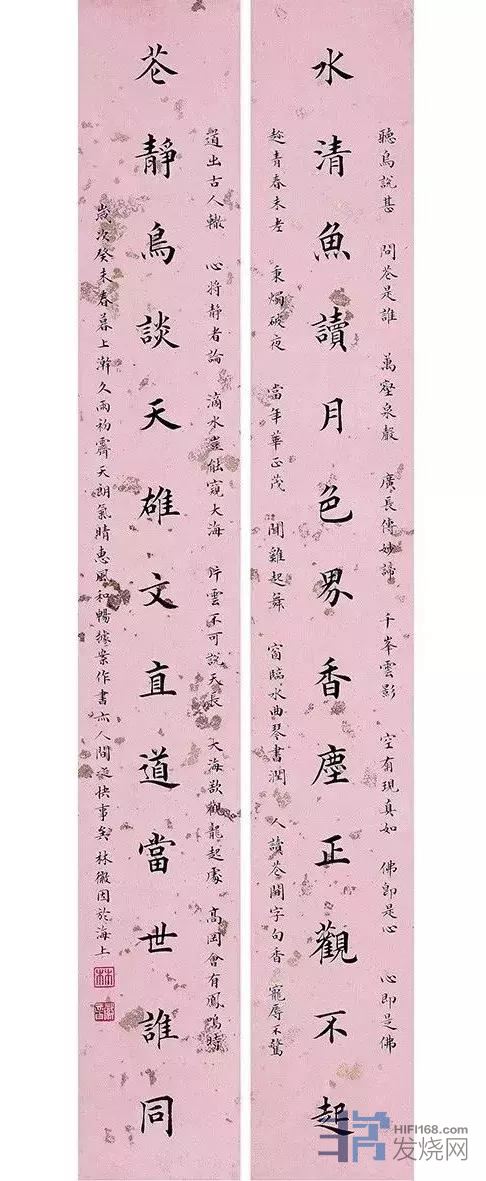 聽鳥說甚 問花是誰 萬壑泉聲 廣長傳妙諦 千峯雲影 空有現真如 佛即是心 心即是佛
水清魚讀月色界香塵正觀不起
趁青春未老 秉燭破夜 當年華正茂 聞雞起舞 窗臨水曲琴書潤 人讀花間字句香 寵辱不驚
道出古人轍 心将靜者論 滴水豈能窺大海 片雲不可說天長 大海欲觀龍起處 高岡會有鳳鳴時
花靜鳥談天雄文直道當世誰同
歲次癸未春暮上澣久雨初霽天朗氣晴惠風和暢據案作書亦人間一快事矣 林徽因於海上
HIFI168.com
发烧网